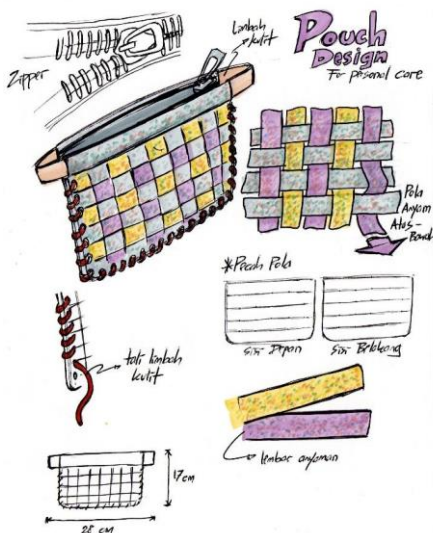 Limbah
kulit
Pouch
Design
For personal care
Zipper
Pola
Anyam
Atas-
Bawah
*Pecah Pola
Sisi Depan
Sisi Belakang
tali limbah
kulit
lembar anyaman
17cm
28 cm